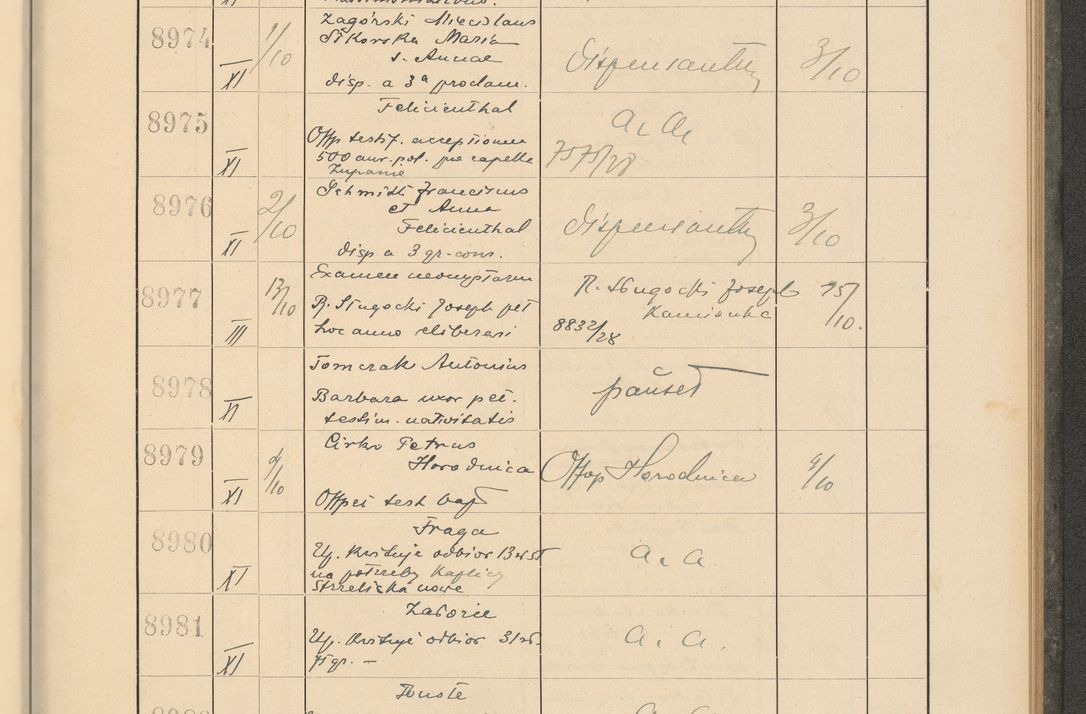 XI
8974
1/10
XI
Zagórski Miecislaus
Sikorska Maria
s. Annae
disp. a 3ª proclam.
Dispensantur
3/10
8975
XI
Felicienthal
Offp testif. acceptionem
500 aur. pol. pro capella
Zupanie
a. a.
8976
2/10
XI
Schmidt Franciscus
et Anna
Felicienthal
disp a 3 gr. cons.
Dispensantur
3/10
8977
13/10
III
Examen neomystarum
R. Długocki Joseph pet
hoc anno liberari
R. Długocki Joseph
Kamionka
8832/28
15/10.
8978
XI
Tomczak Antonius
Barbara uxor pet.
testim. nativitatis
8979
4/10
XI
Cirko Petrus
Horodnica
Offpet test bapt
Offop Horodnica
4/10
8980
XI
Fraga
Up. kwituje odbiór
na potrzeby Kaplicy
Strzeliska nowe
a. a.
8981
XI
Up. kwituje odbiór 31 zł.
75 gr. —
a. a.